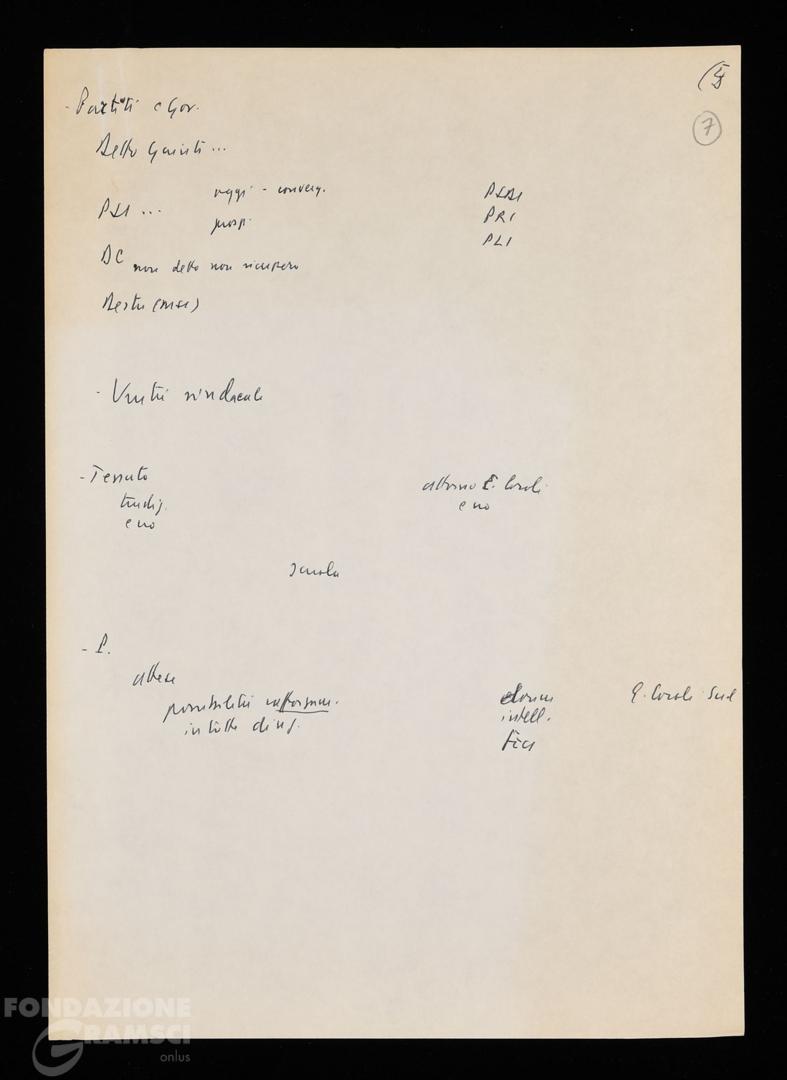 (5
7
- Partiti e Gov.
Detto Giunti ...
oggi - converg.
PSI ...
prosp.
PSDI
PRI
PLI
DC non detto non recupero
Destra (MSI)
- Unità sindacale
- Tessuto
e no
attorno E. locali
e no
Scuola
- P.
attese
possibilità rafforzam.
in tutte direz.
donne
intell.
FGCI
E. locali Sud
FONDAZIONE
GRAMSCI
onlus